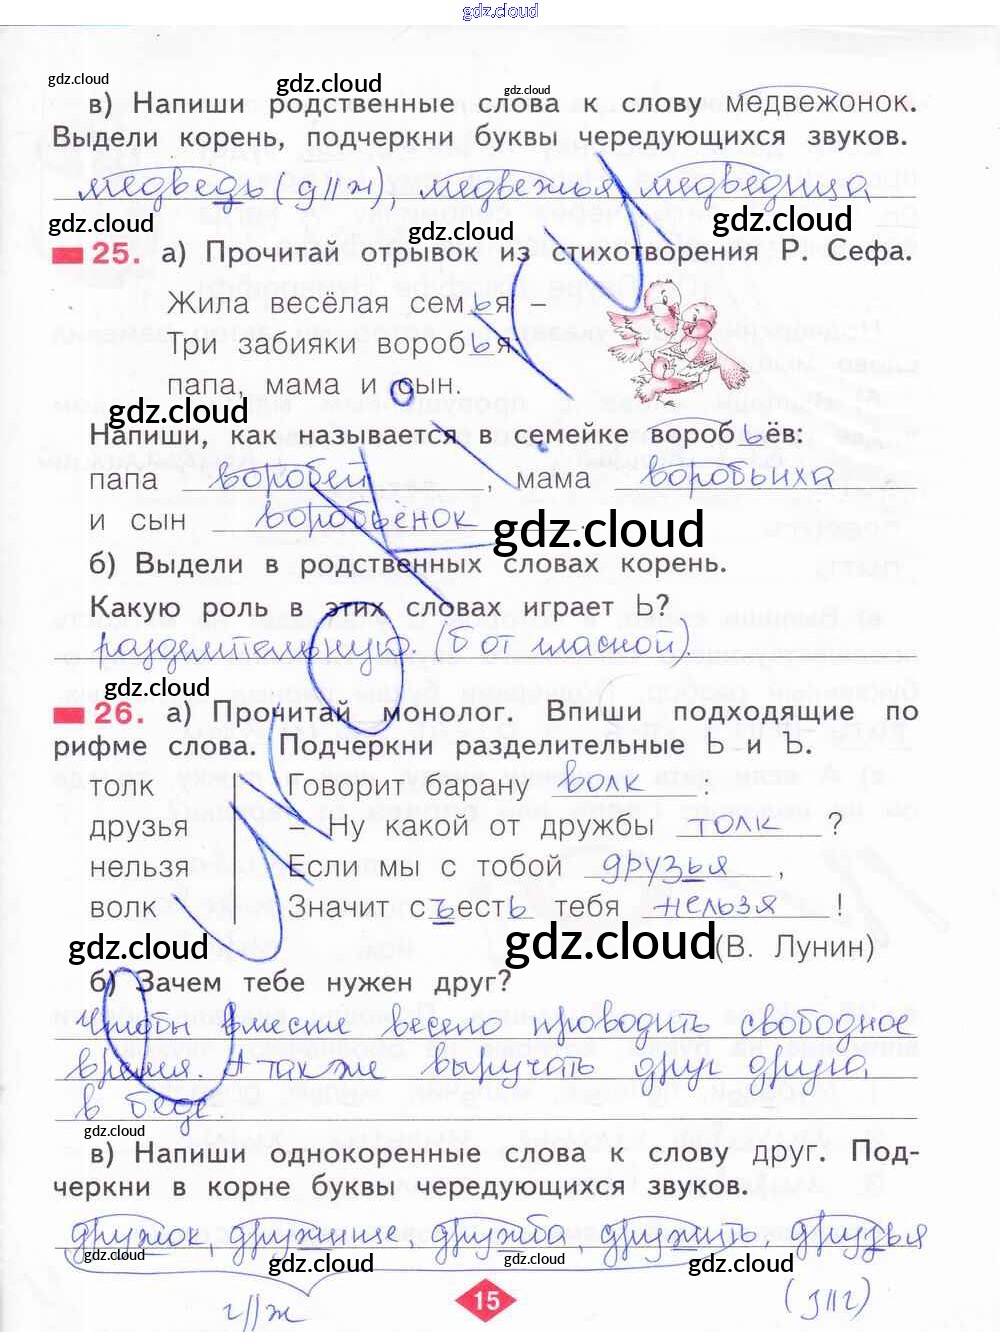 gdz.cloud
gdz.cloud
gdz.cloud gdz.cloud
в) Напиши родственные слова к слову медвежонок.
Выдели корень, подчеркни буквы чередующихся звуков.
медведь (д//ж), медвежья, медведица
gdz.cloud gdz.cloud gdz.cloud
25. а) Прочитай отрывок из стихотворения Р. Сефа.
Жила весёлая семья –
Три забияки воробья
папа, мама и сын.
gdz.cloud
Напиши, как называется в семейке воробьёв:
папа воробей, мама воробьиха
и сын воробьёнок.
gdz.cloud
б) Выдели в родственных словах корень.
Какую роль в этих словах играет Ь?
разделительную. (б от гласной).
gdz.cloud
26. а) Прочитай монолог. Впиши подходящие по
рифме слова. Подчеркни разделительные Ь и Ъ.
толк Говорит барану волк :
друзья – Ну какой от дружбы толк ?
нельзя Если мы с тобой друзья ,
волк Значит съесть тебя нельзя !
gdz.cloud gdz.cloud (В. Лунин)
б) Зачем тебе нужен друг?
Чтобы вместе весело проводить свободное
время. А также выручать друг друга
в беде.
gdz.cloud
в) Напиши однокоренные слова к слову друг. Под-
черкни в корне буквы чередующихся звуков.
дружок, дружище, дружба, дружить, друзья
gdz.cloud gdz.cloud gdz.cloud gdz.cloud
г//ж 15 (з//г)